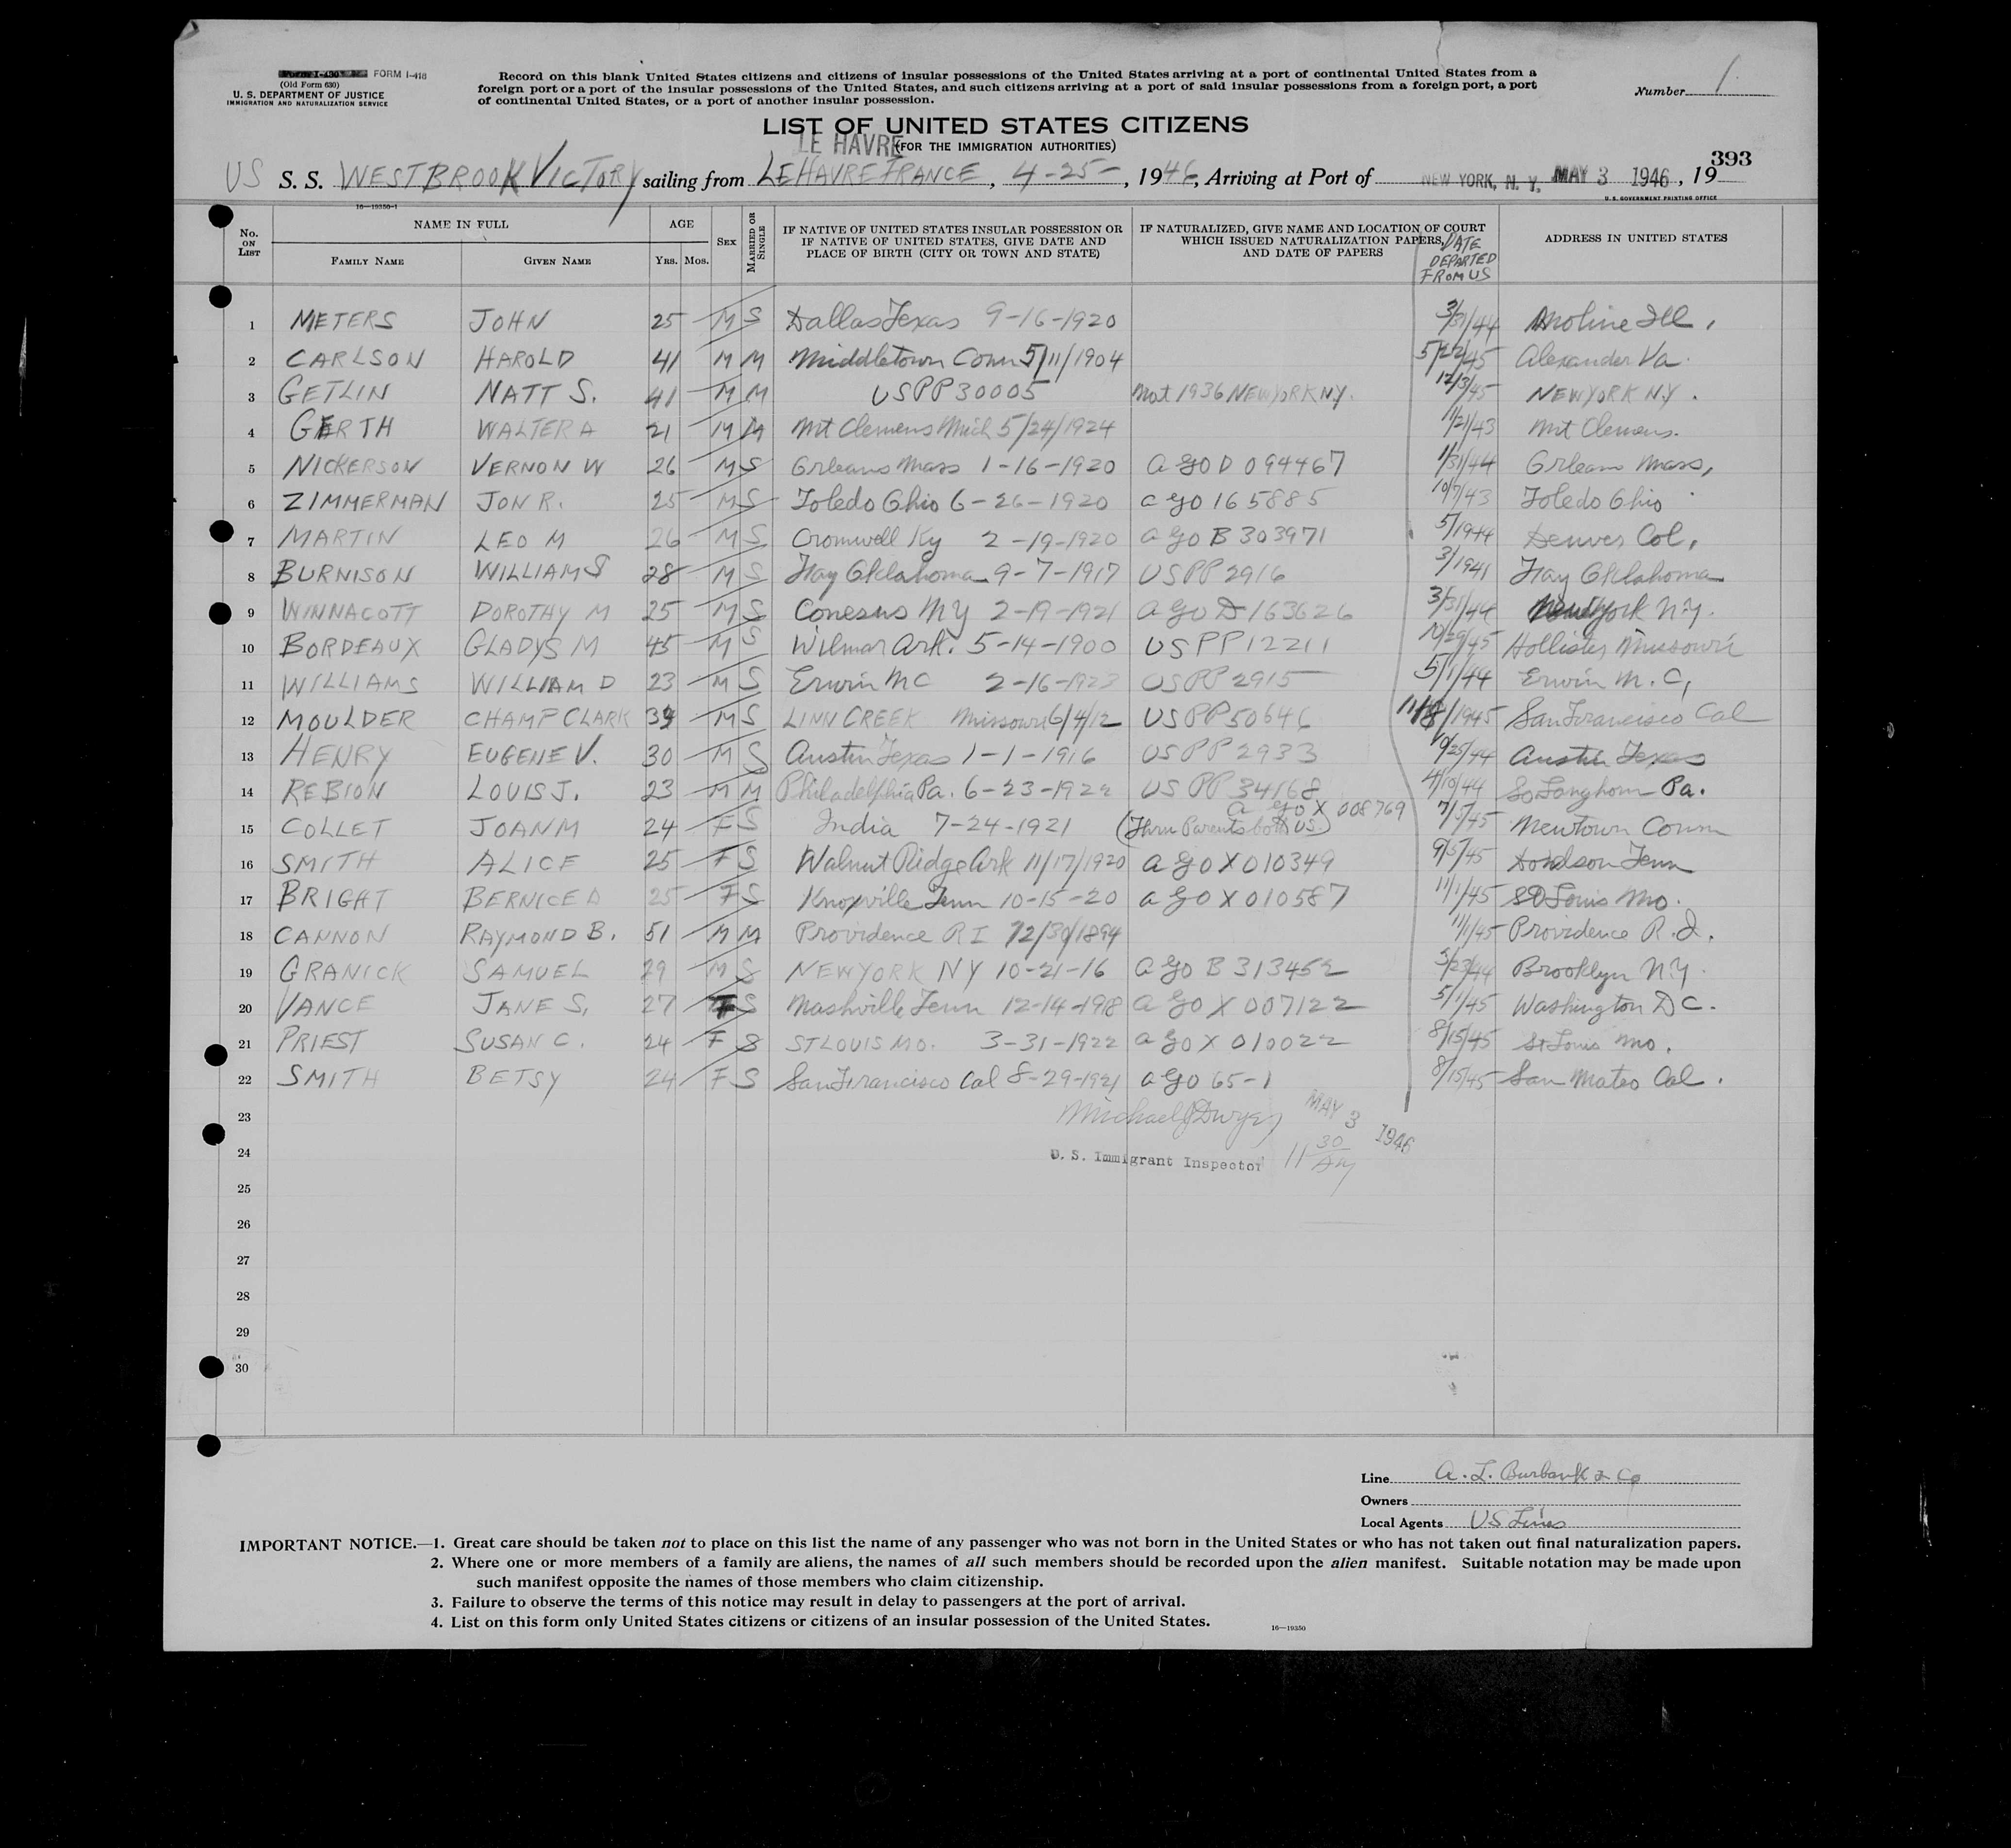 FORM I-418
(Old Form 630)
U. S. DEPARTMENT OF JUSTICE
IMMIGRATION AND NATURALIZATION SERVICE
Record on this blank United States citizens and citizens of insular possessions of the United States arriving at a port of continental United States from a
foreign port or a port of the insular possessions of the United States, and such citizens arriving at a port of said insular possessions from a foreign port, a port
of continental United States, or a port of another insular possession.
Number 1
LIST OF UNITED STATES CITIZENS
LE HAVRE
(FOR THE IMMIGRATION AUTHORITIES)
393
US S. S. WESTBROOK VICTORY sailing from LE HAVRE FRANCE, 4-25-, 1946, Arriving at Port of NEW YORK, N. Y. MAY 3 1946, 19
16—19350-1
U. S. GOVERNMENT PRINTING OFFICE
No. ON LIST
NAME IN FULL
FAMILY NAME
GIVEN NAME
AGE
YRS. MOS.
SEX
MARRIED OR SINGLE
IF NATIVE OF UNITED STATES INSULAR POSSESSION OR
IF NATIVE OF UNITED STATES, GIVE DATE AND
PLACE OF BIRTH (CITY OR TOWN AND STATE)
IF NATURALIZED, GIVE NAME AND LOCATION OF COURT
WHICH ISSUED NATURALIZATION PAPERS,
AND DATE OF PAPERS
DATE
DEPARTED
FROM US
ADDRESS IN UNITED STATES
1 METERS JOHN 25 M S Dallas Texas 9-16-1920 3/31/44 Moline Ill.
2 CARLSON HAROLD 41 M M Middletown Conn 5/11/1904 5/22/45 Alexander Va.
3 GETLIN NATT S. 41 M M USPP 30005 Nat 1936 NEW YORK N.Y. 12/3/45 NEW YORK N.Y.
4 GERTH WALTER A 21 M M Mt Clemens Mich 5/24/1924 11/21/43 Mt Clemens.
5 NICKERSON VERNON W 26 M S Orleans Mass 1-16-1920 AGO D 094467 1/31/44 Orleans Mass,
6 ZIMMERMAN JON R. 25 M S Toledo Ohio 6-26-1920 AGO 165885 10/7/43 Toledo Ohio
7 MARTIN LEO M 26 M S Cromwell Ky 2-19-1920 AGO B 303971 5/1944 Denver Col,
8 BURNISON WILLIAM S 28 M S Fay Oklahoma 9-7-1917 USPP 2916 3/1941 Fay Oklahoma
9 WINNACOTT DOROTHY M 25 M S Conesus NY 2-19-1921 AGO D 163626 3/31/44 New York NY.
10 BORDEAUX GLADYS M 45 M S Wilmar Ark. 5-14-1900 US PP 12211 10/29/45 Hollister Missouri
11 WILLIAMS WILLIAM D 23 M S Erwin NC 2-16-1923 USPP 2915 5/1/44 Erwin N. C,
12 MOULDER CHAMP CLARK M S LINN CREEK Missouri 6/4/12 US PP 50646 11/8/1945 San Francisco Cal
13 HENRY EUGENE V. 30 M S Austin Texas 1-1-1916 US PP 2933 10/25/44 Austin Texas
14 REBION LOUIS J. 23 M M Philadelphia Pa. 6-23-1922 US PP 34168 4/10/44 So Langhorn Pa.
AGO X 008769
15 COLLET JOAN M 24 F S India 7-24-1921 (Thru Parents both US.) 7/5/45 Newtown Conn
16 SMITH ALICE 25 F S Walnut Ridge Ark 11/17/1920 AGO X 010349 9/5/45 Tenn
17 BRIGHT BERNICE D 25 F S Knoxville Tenn 10-15-20 AGO X 010587 11/1/45 St Louis Mo.
18 CANNON RAYMOND B. 51 M M Providence R I 12/30/1894 11/1/45 Providence R. I.
19 GRANICK SAMUEL 29 M S NEW YORK NY 10-21-16 AGO B 313452 3/23/44 Brooklyn NY.
20 VANCE JANE S. 27 F S Nashville Tenn 12-14-1918 AGO X 007122 5/1/45 Washington D C.
21 PRIEST SUSAN C. 24 F S ST LOUIS MO. 3-31-1922 AGO X 010022 8/15/45 St Louis Mo.
22 SMITH BETSY 24 F S San Francisco Cal 8-29-1921 AGO 65-1 8/15/45 San Mateo Cal.
23 Michael J Dwyer MAY 3 1946
24 U. S. Immigrant Inspector 11 30 AM
25
26
27
28
29
30
Line A. L. Burbank & Co
Owners
Local Agents US Lines
IMPORTANT NOTICE.—1. Great care should be taken not to place on this list the name of any passenger who was not born in the United States or who has not taken out final naturalization papers.
2. Where one or more members of a family are aliens, the names of all such members should be recorded upon the alien manifest. Suitable notation may be made upon
such manifest opposite the names of those members who claim citizenship.
3. Failure to observe the terms of this notice may result in delay to passengers at the port of arrival.
4. List on this form only United States citizens or citizens of an insular possession of the United States.
16—19350